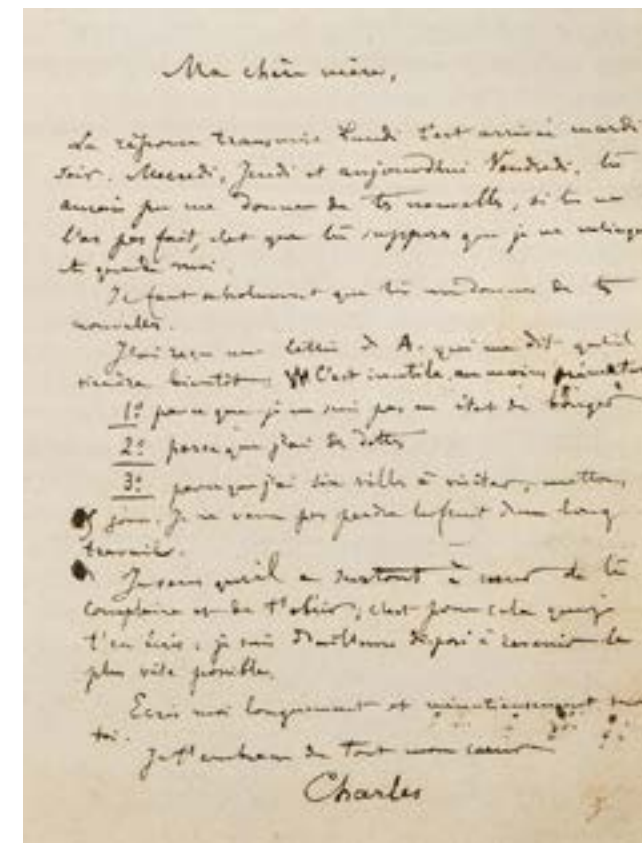 Ma chère mère,
La réponse transmise Lundi s'est arrivée mardi
soir. Mercredi, Jeudi et aujourdhui Vendredi, tu
aurais pu me donner de tes nouvelles, si tu ne
l'as pas fait, c'est que tu supposes que je ne
et que de moi.
Il faut absolument que tu me donnes de tes
nouvelles.
J'ai reçu une lettre de A. qui me dit qu'il
viendra bientôt. C'est inutile, au moins prématuré
1º parce que je ne suis pas en état de bouger
2º parce que j'ai des dettes
3º parce que j'ai six villes à visiter, mettons,
15 jours. Je ne veux pas perdre le fruit d'un long
travail.
Je sens qu'il a surtout à cœur de te
complaire et de t'obéir; c'est pour cela que je
t'en écris; je suis d'ailleurs disposé à revenir le
plus vite possible.
Ecris moi longuement et minutieusement sur
toi.
Je t'embrasse de tout mon cœur
Charles